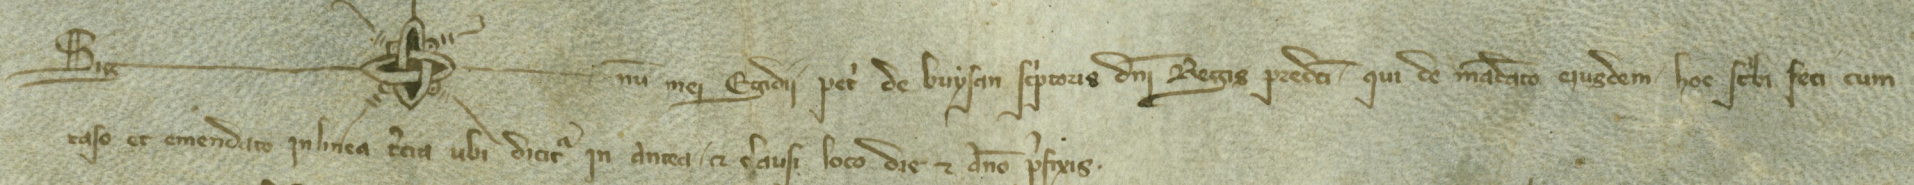 Sig nu mei Egidii pet de buysan sc'ptoris dni Regis predcti qui de mādato eiusdem hoc sc'bi feci cum
raso et emendato in linea t'cia ubi dicit' in antea et clausi loco die et anno p'fixis.